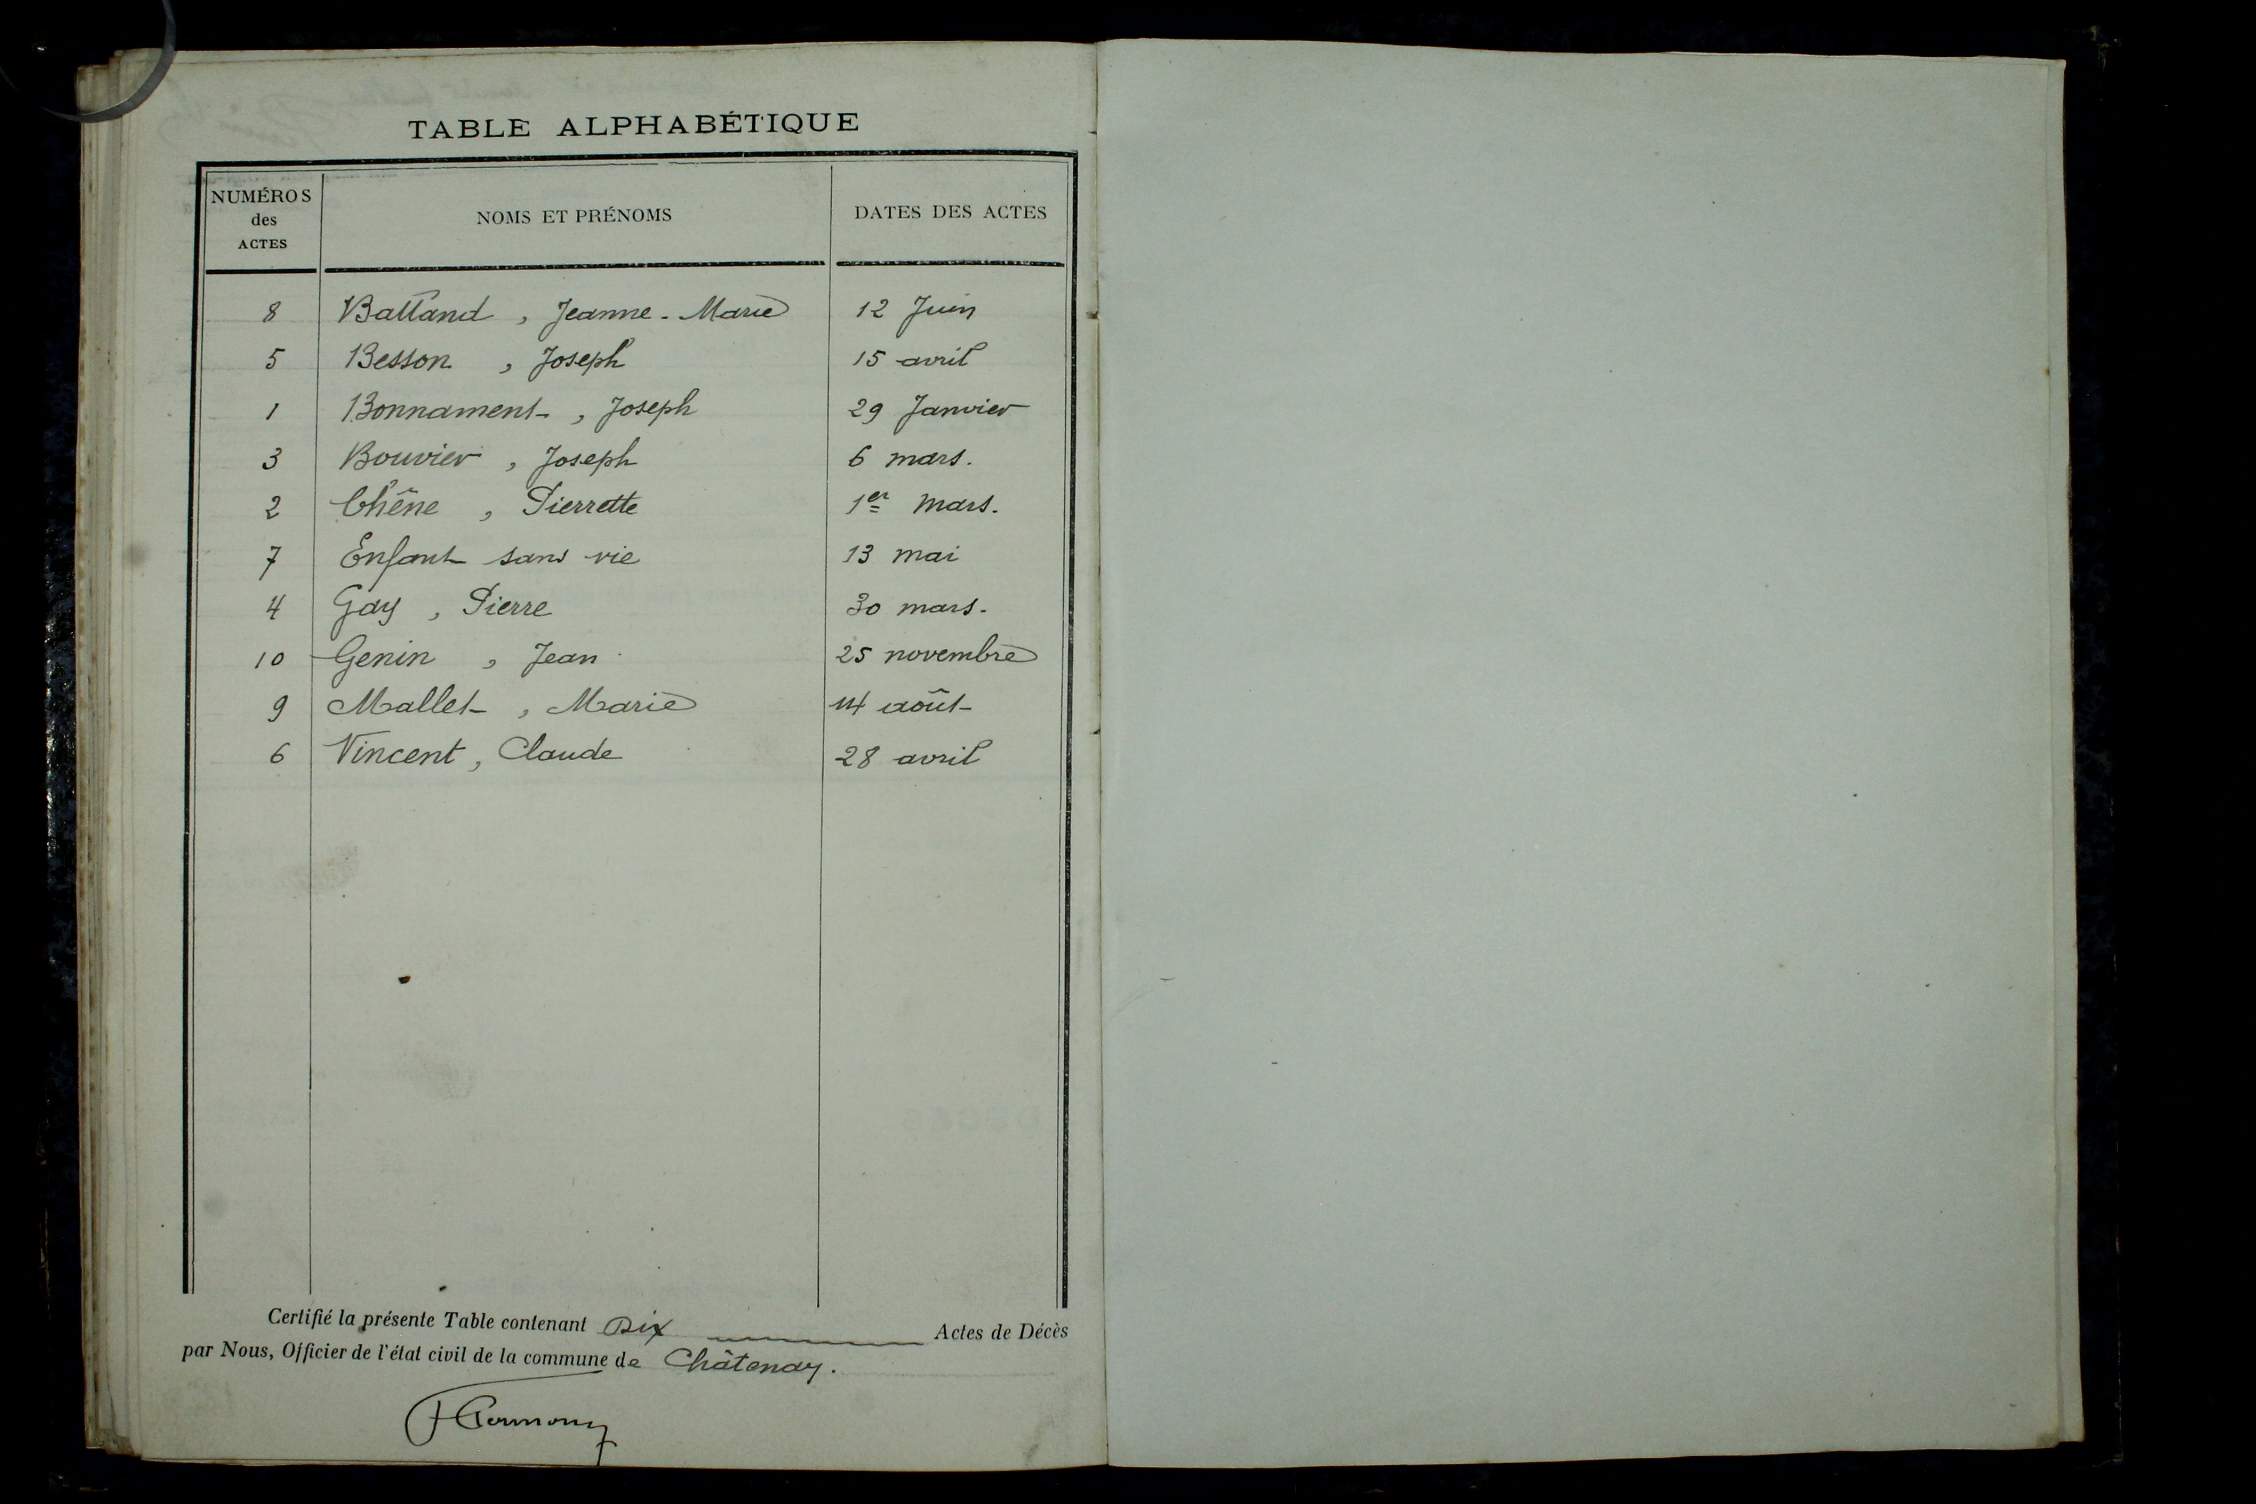 TABLE ALPHABÉTIQUE
NUMÉROS
des
ACTES
NOMS ET PRÉNOMS
DATES DES ACTES
8 Battand, Jeanne-Marie 12 Juin
5 Besson, Joseph 15 avril
1 Bonnament, Joseph 29 Janvier
3 Bouvier, Joseph 6 mars.
2 Chêne, Pierrette 1er mars.
7 Enfant sans vie 13 mai
4 Gay, Pierre 30 mars.
10 Genin, Jean 25 novembre
9 Mallet, Marie 14 août
6 Vincent, Claude 28 avril
Certifié la présente Table contenant Dix Actes de Décès
par Nous, Officier de l'état civil de la commune de Châtenay.